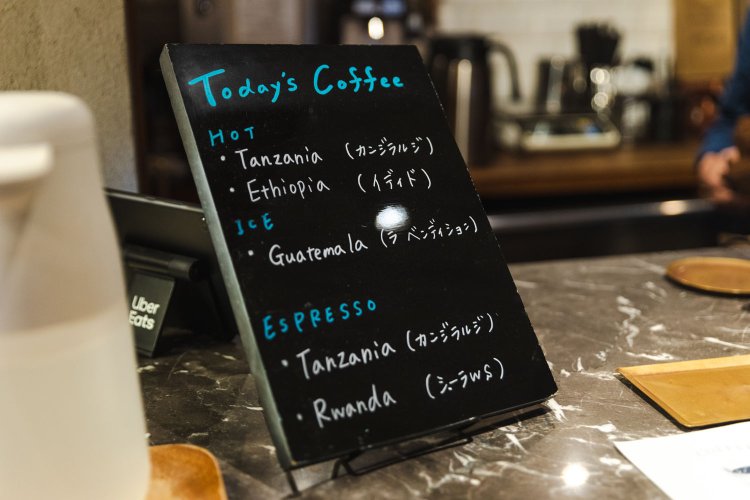 Today's Coffee
HOT
・Tanzania (カンジラルジ)
・Ethiopia (イディド)
ICE
・Guatemala (ラ ベンディション)
ESPRESSO
・Tanzania (カンジラルジ)
・Rwanda (シーラWS)
Uber
Eats